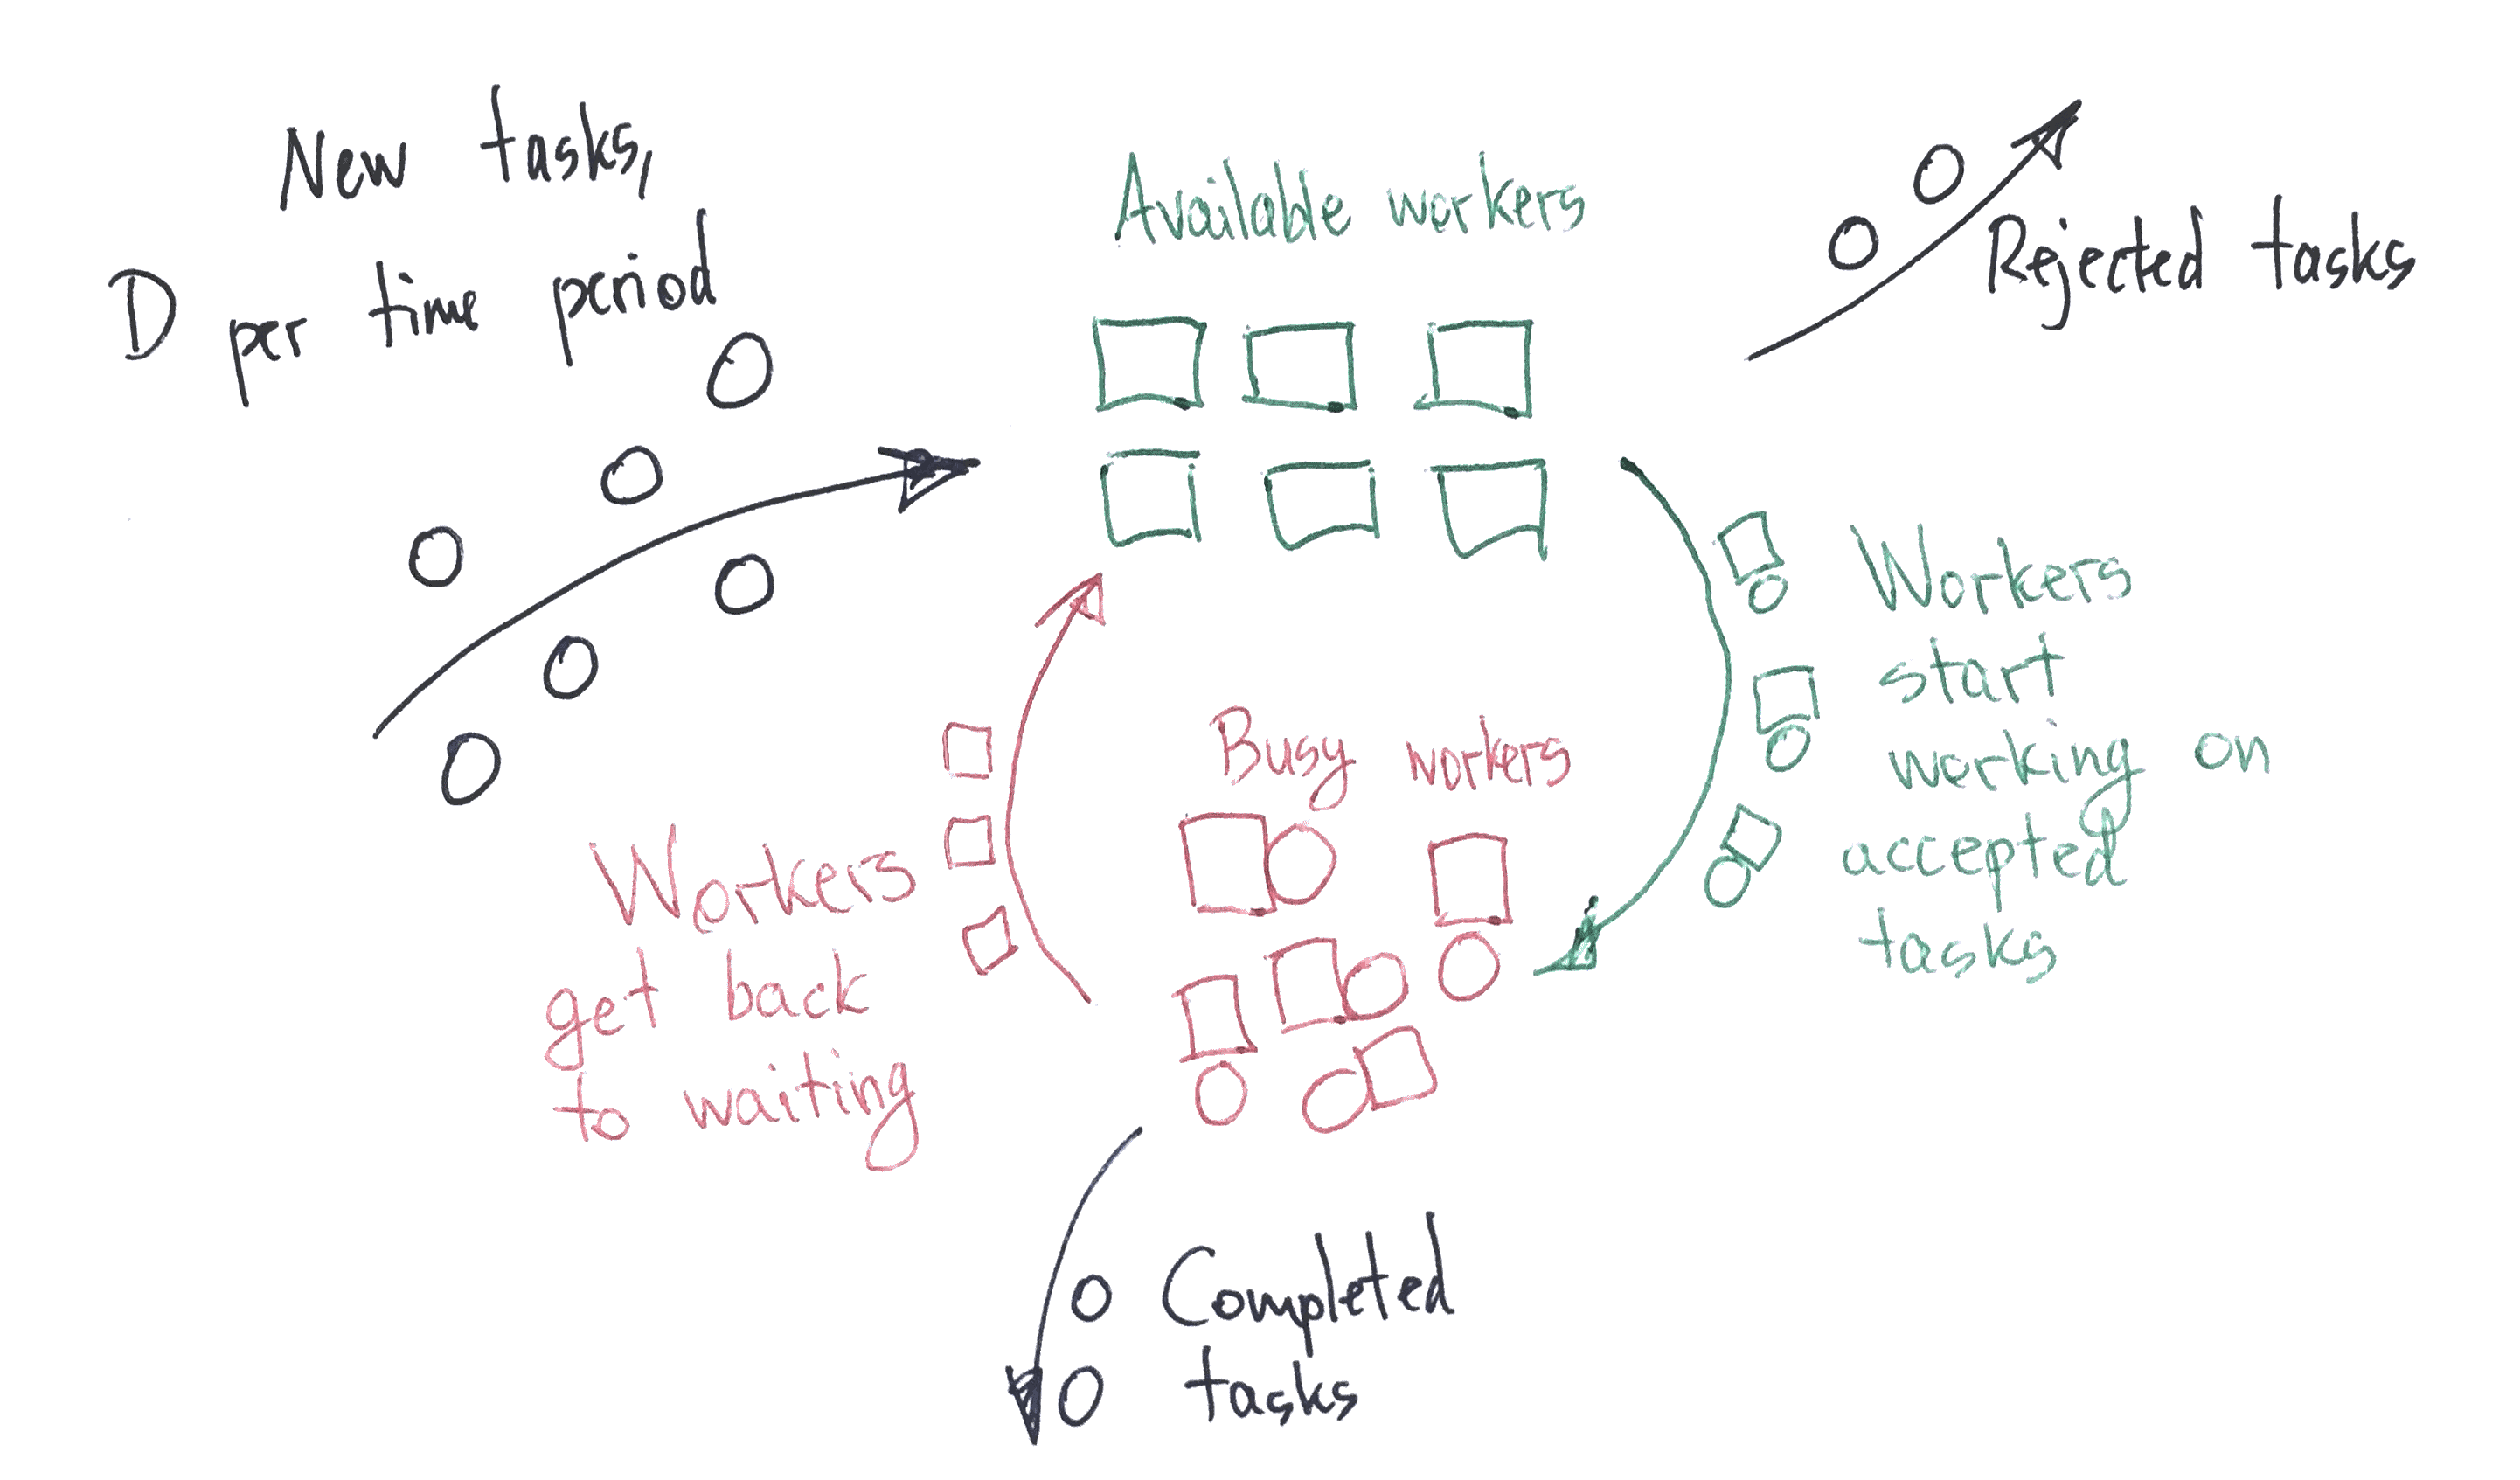 New tasks,
D per time period
Available workers
Rejected tasks
Workers
start
working on
accepted
tasks
Busy workers
Workers
get back
to waiting
Completed
tasks